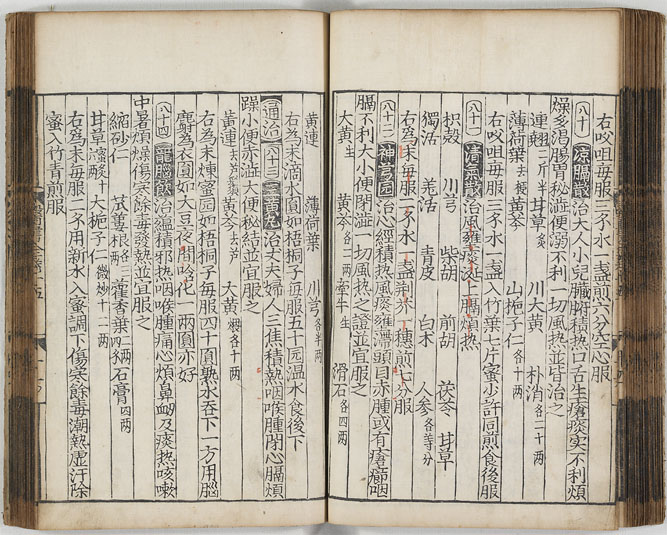 右㕮咀每服三字水一盞煎六分空心服
〔八十〕凉膈散治大人小兒臟腑積熱口舌生瘡痰實不利煩
燥多渴腸胃秘澁便溺不利一切風熱並皆治之
連翹二斤半 甘草炙 川大黃 朴消各二十兩
薄荷葉去梗 黃芩 山梔子仁各十兩
右㕮咀每服二字水一盞入竹葉七片蜜少許同煎食後服
〔八十一〕清氣散治風壅痰涎上膈煩熱
枳殼 川芎 柴胡 前胡 茯苓 甘草
獨活 羌活 青皮 白术 人参各等分
右為末每服二字水一盞荊芥一穗煎七分服
〔八十二〕神芎圓治心經積熱風痰壅滯頭目赤腫或有瘡癤咽
膈不利大小便閉澁一切風熱之證並宜服之
大黃生 黃芩各二兩 牽牛生 滑石各四兩
黃連 薄荷葉 川芎各半兩
右為末滴水圓如梧桐子每服五十圓温水食後下
〔通治〕〔八十三〕三黃丸治丈夫婦人三焦積熱咽喉腫閉心膈煩
躁小便赤澁大便秘結並宜服之
黃連去芦 黃芩去芦 大黃煨各十兩
右為末煉蜜圓如梧桐子每服四十圓熟水吞下一方用腦
麝為衣圓如大豆夜間噙化一兩圓亦好
〔八十四〕龍腦飲治藴積邪熱咽喉腫痛心煩鼻衂及痰熱咳嗽
中暑煩燥傷寒餘毒發熱並宜服之
縮砂仁 苽蔞根各三兩 藿香葉二兩四錢 石膏四兩
甘草蜜炙十六兩 大梔子仁微炒十二兩
右為末每服一二字用新水入蜜調下傷寒餘毒潮熱虛汗除
蜜入竹青煎服